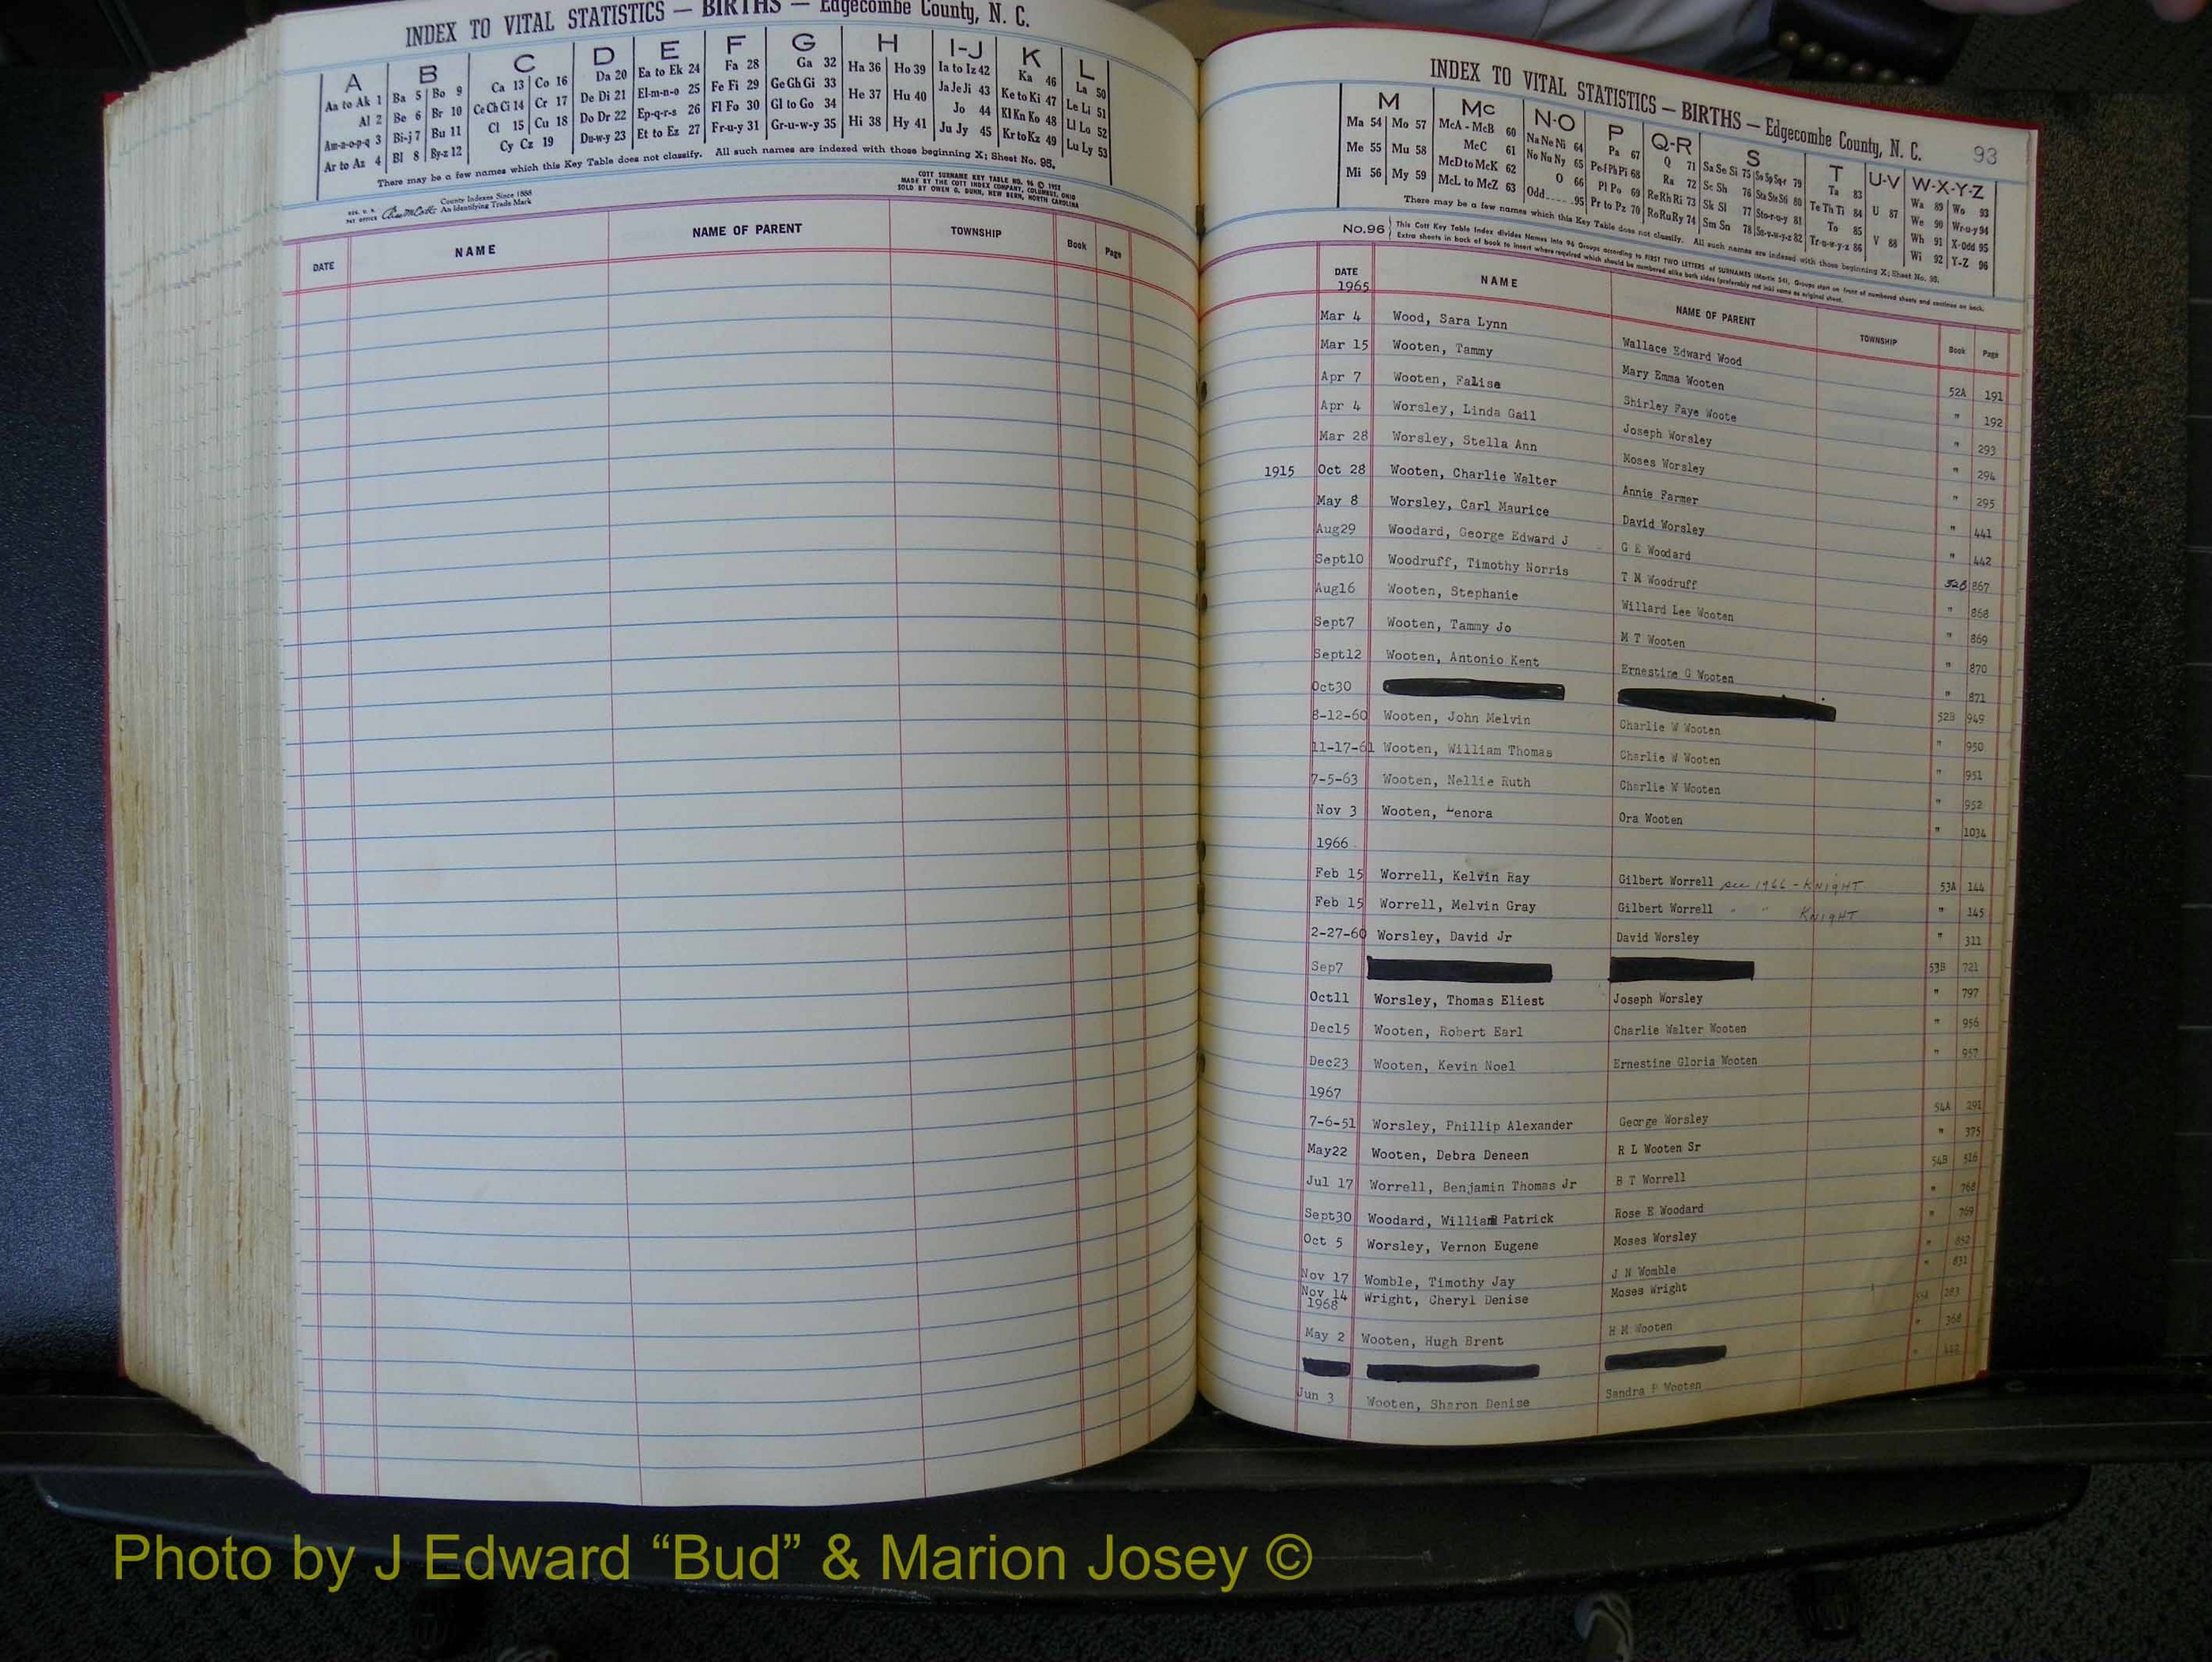 INDEX TO VITAL STATISTICS — BIRTHS — Edgecombe County, N. C.
A B C D E F G H I-J K L
Aa to Ak 1 Ba 5 Bo 9 Ca 13 Co 16 Da 20 Ea to Ek 24 Fa 28 Ga 32 Ha 36 Ho 39 Ia to Iz 42 Ka 46 La 50
Al 2 Be 6 Br 10 Ce Ch Ci 14 Cr 17 De Di 21 El-m-n-o 25 Fe Fi 29 Ge Gh Gi 33 He 37 Hu 40 Ja Je Ji 43 Ke to Ki 47 Le Li 51
Am-n-o-p-q 3 Bi-j 7 Bu 11 Cl 15 Cu 18 Do Dr 22 Ep-q-r-s 26 Fl Fo 30 Gl to Go 34 Hi 38 Hy 41 Jo 44 Kl Kn Ko 48 Ll Lo 52
Ar to Az 4 Bl 8 By-z 12 Cy Cz 19 Du-w-y 23 Et to Ez 27 Fr-u-y 31 Gr-u-w-y 35 Ju Jy 45 Kr to Kz 49 Lu Ly 53
There may be a few names which this Key Table does not classify. All such names are indexed with those beginning X; Sheet No. 95.
County Indexes Since 1888
An Identifying Trade Mark
COTT SURNAME KEY TABLE NO. 96 ©
MADE BY THE COTT INDEX COMPANY, COLUMBUS, OHIO
SOLD BY OWEN G. DUNN, NEW BERN, NORTH CAROLINA
DATE NAME NAME OF PARENT TOWNSHIP Book Page
INDEX TO VITAL STATISTICS — BIRTHS — Edgecombe County, N. C. 93
M Mc N-O P Q-R S T U-V W-X-Y-Z
Ma 54 Mo 57 McA - McB 60 Na Ne Ni 64 Pa 67 Q 71 Sa Se Si 75 So Sp Sq-r 79 Ta 83 U 87 Wa 89 Wo 93
Me 55 Mu 58 McC 61 No Nu Ny 65 Pe-f Ph Pi 68 Ra 72 Sc Sh 76 Sta Ste Sti 80 Te Th Ti 84 V 88 We 90 Wr-u-y 94
Mi 56 My 59 McD to McK 62 O 66 Pl Po 69 Re Rh Ri 73 Sk Sl 77 Sto-r-u-y 81 To 85 Wh 91 X-Odd 95
McL to McZ 63 Odd 95 Pr to Pz 70 Ro Ru Ry 74 Sm Sn 78 Su-v-w-y-z 82 Tr-u-w-y-z 86 Wi 92 Y-Z 96
There may be a few names which this Key Table does not classify. All such names are indexed with those beginning X; Sheet No. 95.
No.96 This Cott Key Table Index divides Names into 96 Groups according to FIRST TWO LETTERS of SURNAMES (Martin 54). Groups start on front of numbered sheets and continue on back.
Extra sheets in back of book to insert where required which should be numbered alike both sides (preferably red ink) same as original sheet.
DATE NAME NAME OF PARENT TOWNSHIP Book Page
1965
Mar 4 Wood, Sara Lynn Wallace Edward Wood 52A 191
Mar 15 Wooten, Tammy Mary Emma Wooten " 192
Apr 7 Wooten, Falise Shirley Faye Woote " 293
Apr 4 Worsley, Linda Gail Joseph Worsley " 294
Mar 28 Worsley, Stella Ann Moses Worsley " 295
1915 Oct 28 Wooten, Charlie Walter Annie Farmer " 441
May 8 Worsley, Carl Maurice David Worsley " 442
Aug29 Woodard, George Edward J G E Woodard 52B 867
Sept10 Woodruff, Timothy Norris T M Woodruff " 868
Aug16 Wooten, Stephanie Willard Lee Wooten " 869
Sept7 Wooten, Tammy Jo M T Wooten " 870
Sept12 Wooten, Antonio Kent Ernestine G Wooten " 871
Oct30 52B 949
8-12-60 Wooten, John Melvin Charlie W Wooten " 950
11-17-61 Wooten, William Thomas Charlie W Wooten " 951
7-5-63 Wooten, Nellie Ruth Charlie W Wooten " 952
Nov 3 Wooten, Lenora Ora Wooten " 1034
1966
Feb 15 Worrell, Kelvin Ray Gilbert Worrell see 1966 - KNIGHT 53A 144
Feb 15 Worrell, Melvin Gray Gilbert Worrell " " KNIGHT " 145
2-27-60 Worsley, David Jr David Worsley " 311
Sep7 53B 721
Oct11 Worsley, Thomas Eliest Joseph Worsley " 797
Dec15 Wooten, Robert Earl Charlie Walter Wooten " 956
Dec23 Wooten, Kevin Noel Ernestine Gloria Wooten " 957
1967
7-6-51 Worsley, Phillip Alexander George Worsley 54A 291
May22 Wooten, Debra Deneen R L Wooten Sr " 375
Jul 17 Worrell, Benjamin Thomas Jr B T Worrell 54B 516
Sept30 Woodard, William Patrick Rose E Woodard " 768
Oct 5 Worsley, Vernon Eugene Moses Worsley " 769
Nov 17 Womble, Timothy Jay J N Womble " 852
Nov 14 Wright, Cheryl Denise Moses Wright " 831
1968
May 2 Wooten, Hugh Brent H M Wooten 55A 283
" 368
Jun 3 Wooten, Sharon Denise Sandra P Wooten "
Photo by J Edward “Bud” & Marion Josey ©